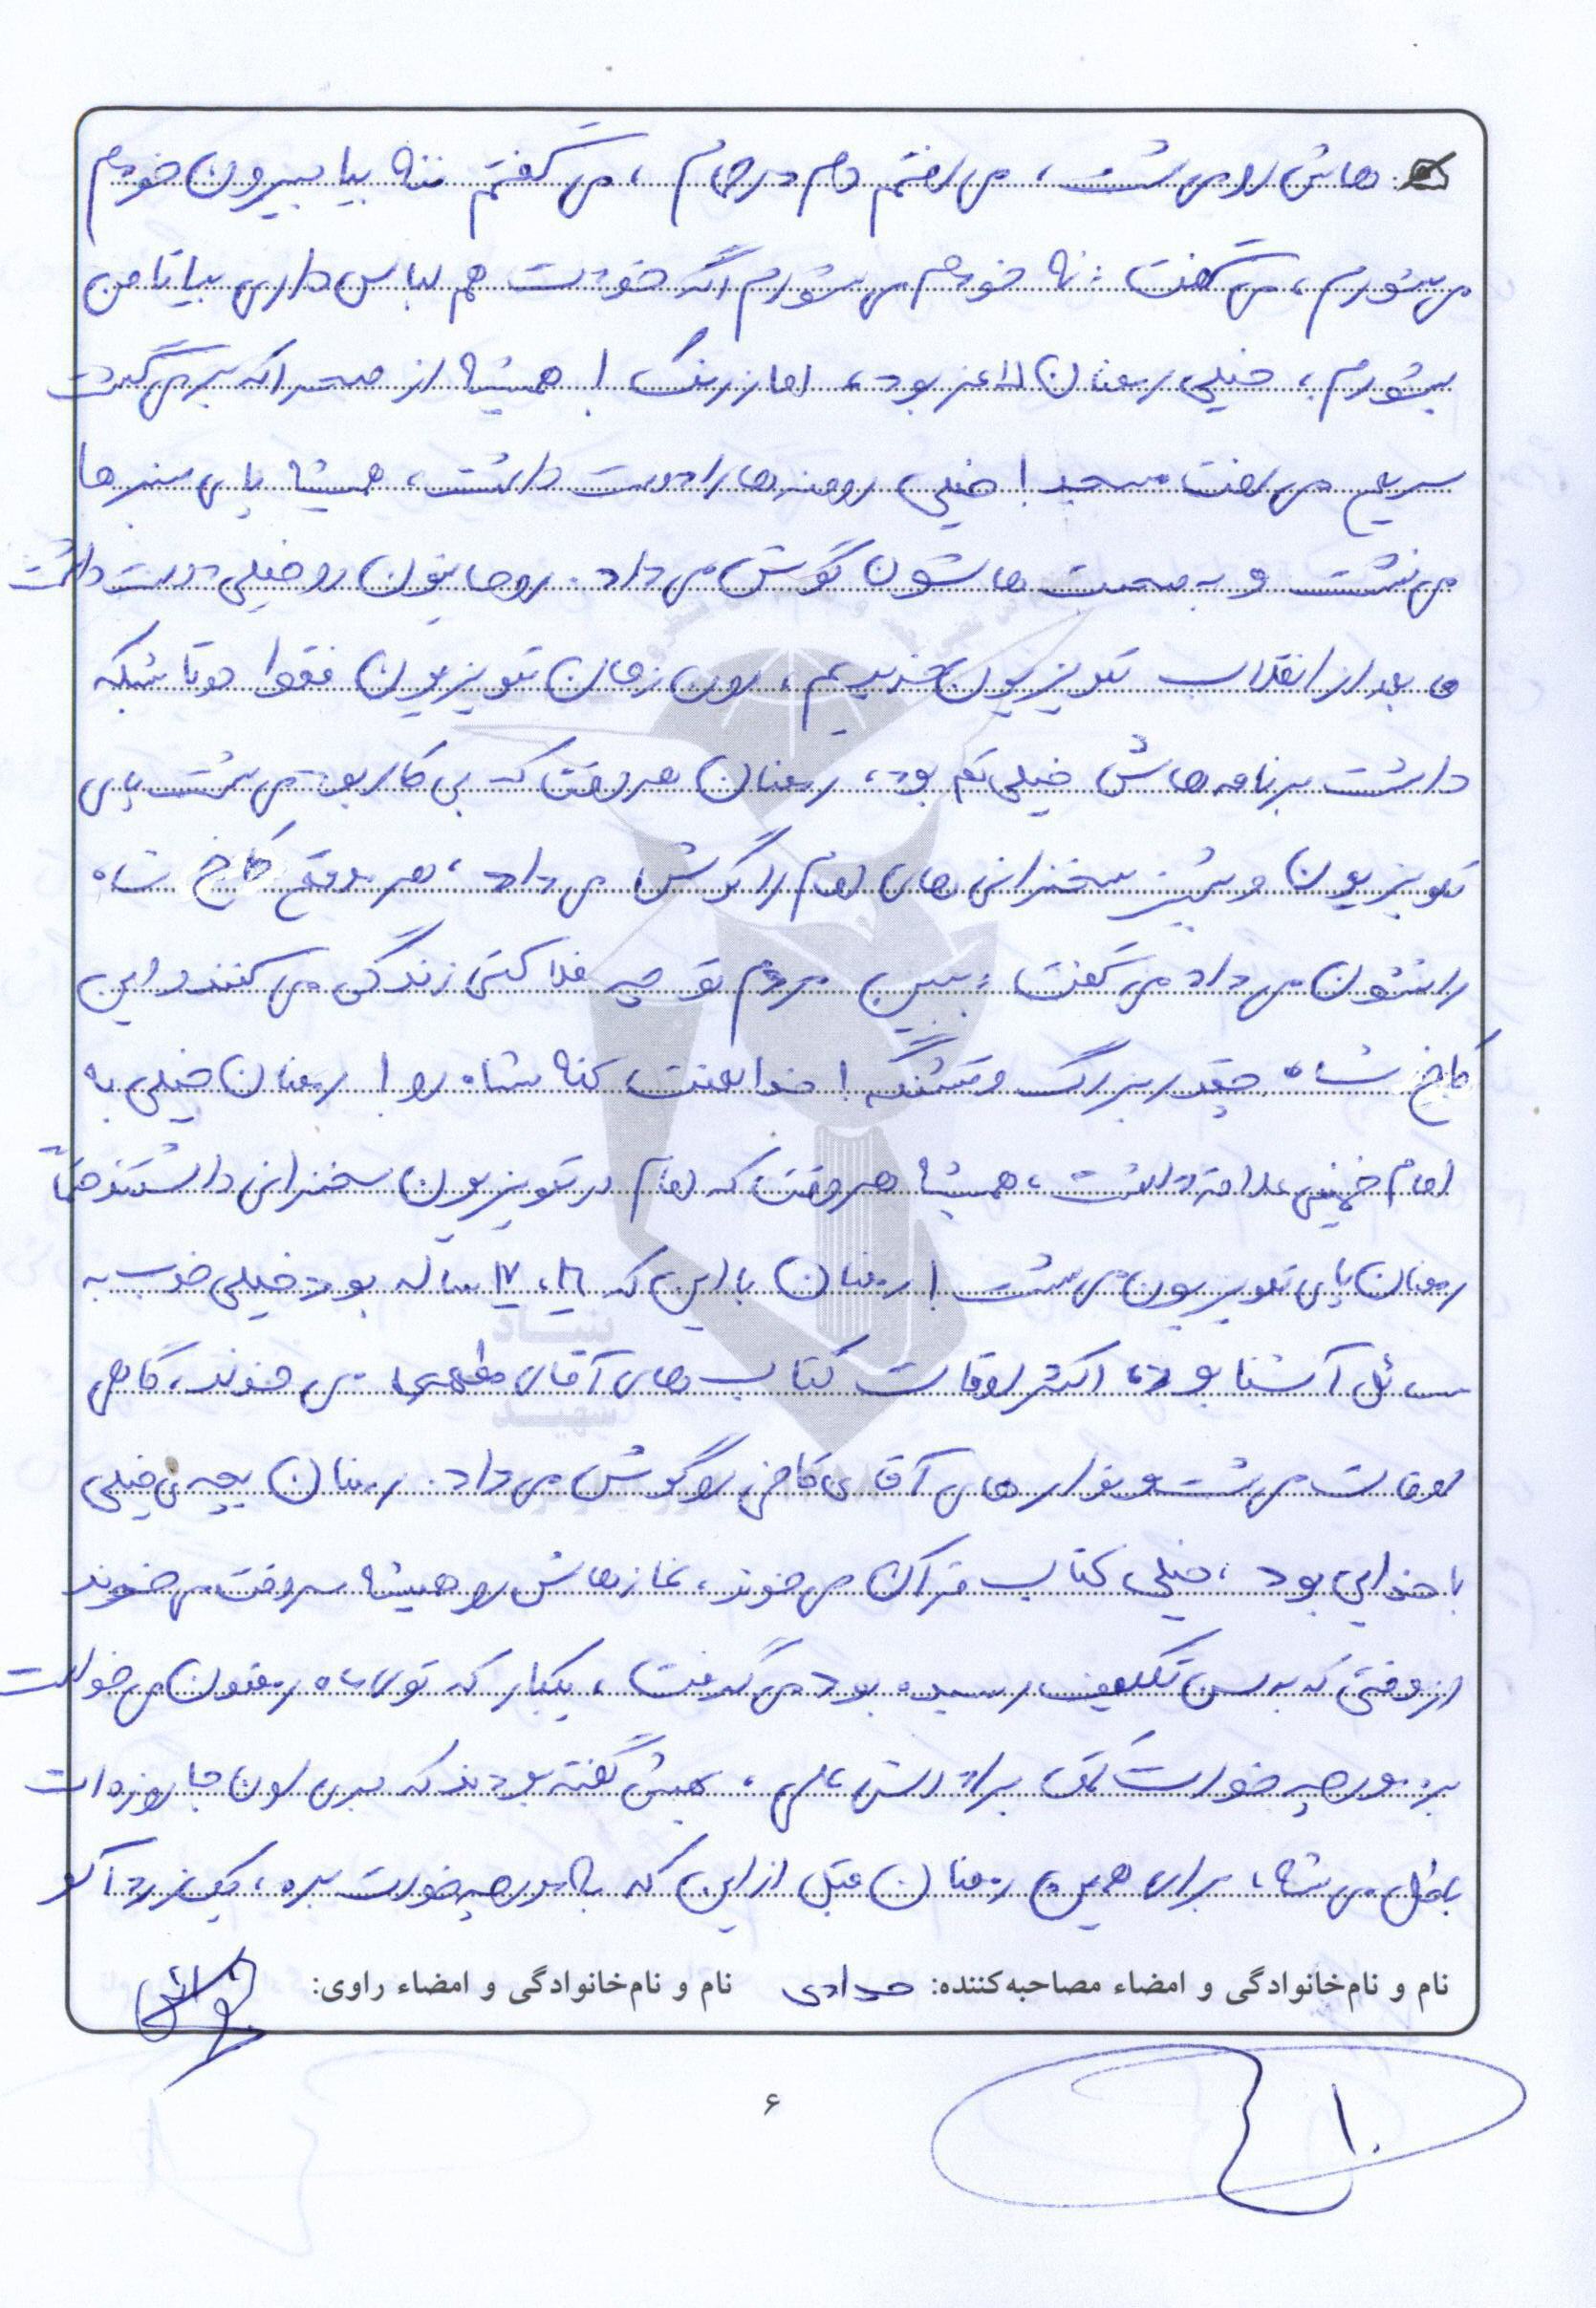 هاش رو می شست، می رفتم دم در حمام، می گفتم ننه بیا بیرون خودم
می شورم، می گفت: نه خودم می شورم اگه خودت هم لباس داری بیا تا من
بشورم، خیلی رمضان لاغر بود، اما زرنگ! همیشه از صحرا که بر می گشت
سریع می رفت مسجد! خیلی روضه ها را دوست داشت، همیشه پای منبرها
می نشست و به صحبت هاشون گوش می داد. روحانیون رو خیلی دوست داشت
ما بعد از انقلاب تلویزیون خریدیم، اون زمان تلویزیون فقط دوتا شبکه
داشت برنامه هاش خیلی کم بود، رمضان هر وقت که بی کار بود می شست پای
تلویزیون و بیشتر سخنرانی های امام را گوش می داد، هر موقع کاخ شاه
را نشون می داد می گفت: ببین مردم تو چه فلاکتی زندگی می کنند و این
کاخ شاه چقدر بزرگ و قشنگه! خدا لعنت کنه شاه رو! رمضان خیلی به
امام خمینی علاقه داشت، همیشه هر وقت که امام در تلویزیون سخنرانی داشتند حتماً
رمضان پای تلویزیون می شست! رمضان با این که ۱۶، ۱۷ ساله بود خیلی خوب به
مسائل آشنا بود، اکثر اوقات کتاب های آقای مطهری می خوند، گاهی
اوقات می شست و نوارهای آقای کافی رو گوش می داد. رمضان بچه ی خیلی
با خدایی بود، خیلی کتاب قرآن می خوند، نمازهاش رو همیشه سر وقت می خوند
از وقتی که به سن تکلیف رسیده بود می گرفت، یکبار که توی ماه رمضون می خواست
بره بورچه خورت کمک برادرش علی، بهش گفته بودند که بری اون جا روزه ات
باطل می شه، برای همین رمضان قبل از این که به بورچه خورت بره، یک نردآ
نام و نام‌خانوادگی و امضاء مصاحبه‌کننده: حدادی نام و نام‌خانوادگی و امضاء راوی:
۶